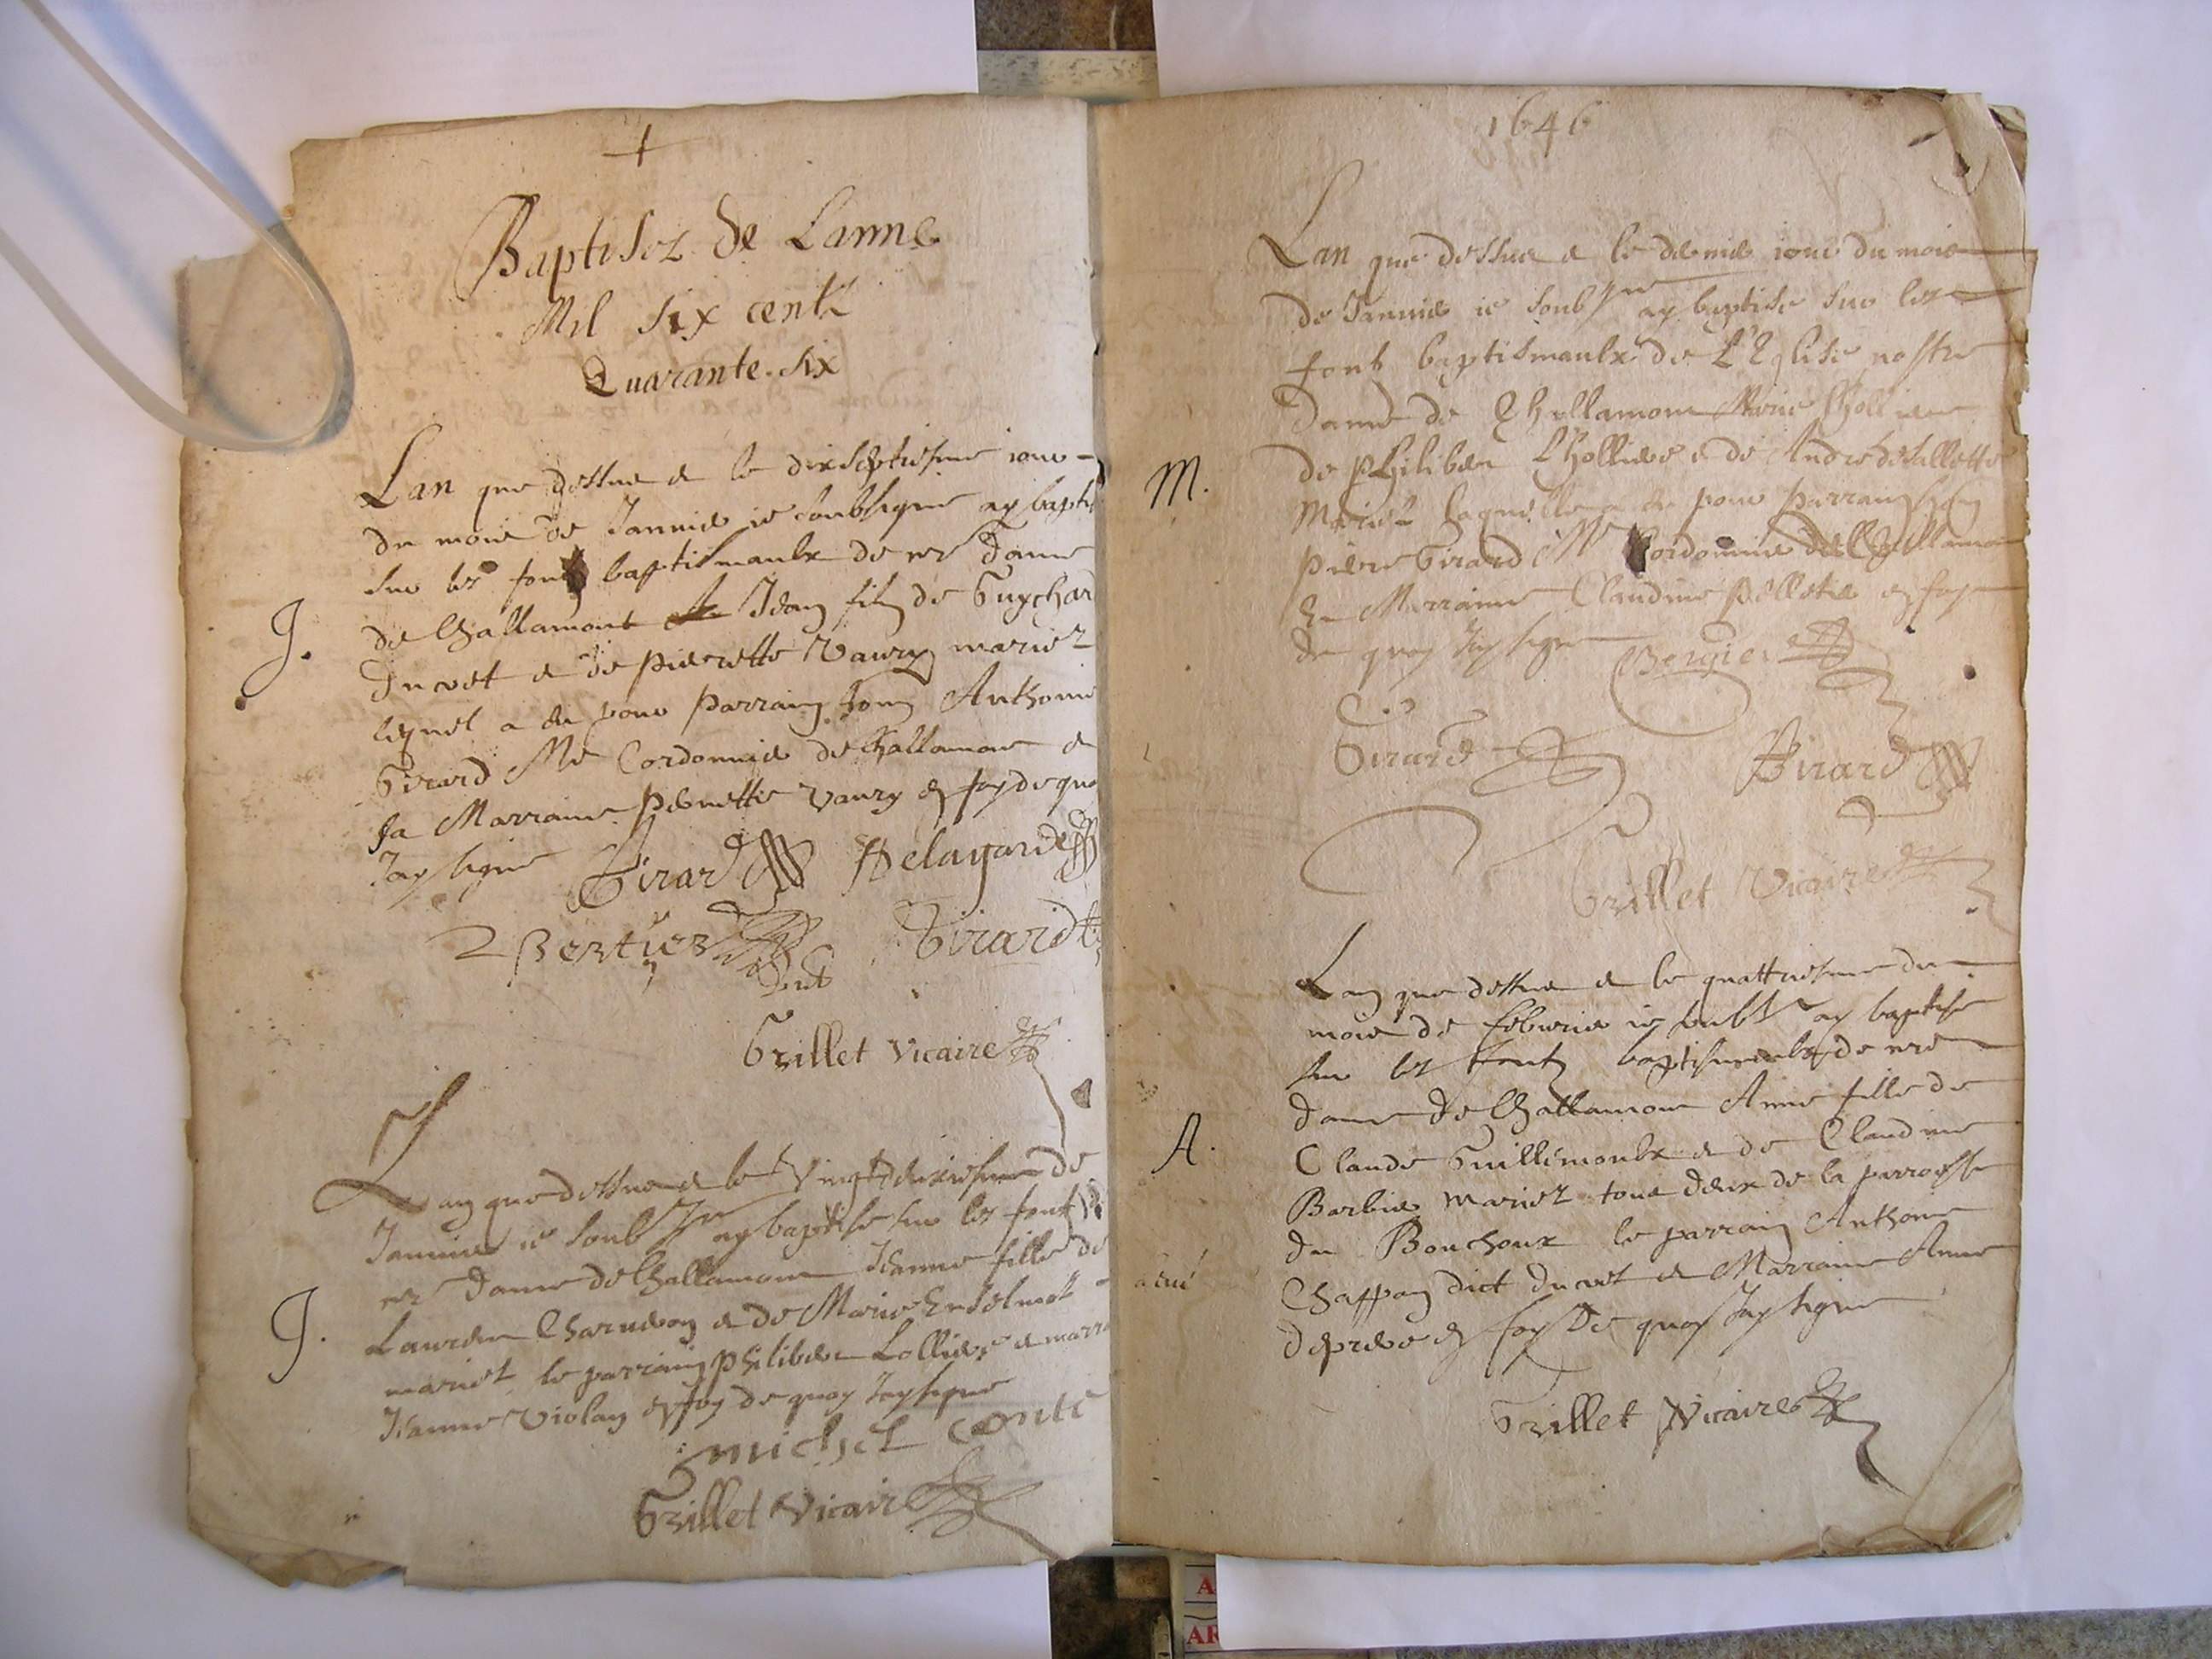 Baptisez de Lanne
Mil six cents
Quarante six
Lan que dessus et le dixseptiesme iour
du mois de Januier ie soubsigne ay baptis
sur les fonts baptismaulx de nre Dame
de Challamont Jean filz de Guychard
Ducret et de Pierrette Vaury mariez
lequel a eu pour parrain hon Anthoine
Girard Me Cordonnier de Challamont et
sa Marraine Pernette Vaury en foy de quoy
Jay signe Girard Delagarde
Bertier Girardt
Grillet Vicaire
J.
Lan que dessus et le Vingt deuxiesme de
Januier ie soubsne ay baptise sur les fonts
nre Dame de Challamont Jeanne fille de
Laurent Charueon et de Marie
mariez le parrain Philibert Lollier et marra
Jeanne Violan en foy de quoy Jay signe
michel conte
Grillet Vicaire
J.
1646
Lan que dessus et le dernier iour du mois
de Januier ie soubsne ay baptise sur les
fonts baptismaulx de L'Eglise nostre
Dame de Challamont Marie Lhollier
de Philibert Lhollier et de Andre desallette
Mariez laquelle a eu pour parrain hon
Pierre Girard Me Cordonnier de Challamont
Et Marraine Claudine Pelletier en foy
de quoy Jay signe Bergier
M.
Girard Girard
Grillet Vicaire
Lan que dessus et le quattriesme du
mois de feburier ie soubsne ay baptise
sur les fonts baptismaulx de nre
Dame de Challamont Anne fille de
Claude Guillemoulx et de Claudine
Barbier mariez tous deux de la parroisse
du Bouchoux le parrain Anthoine
Chappon dict Ducret et Marraine Anne
en foy De quoy Jay signe
A.
Grillet Vicaire